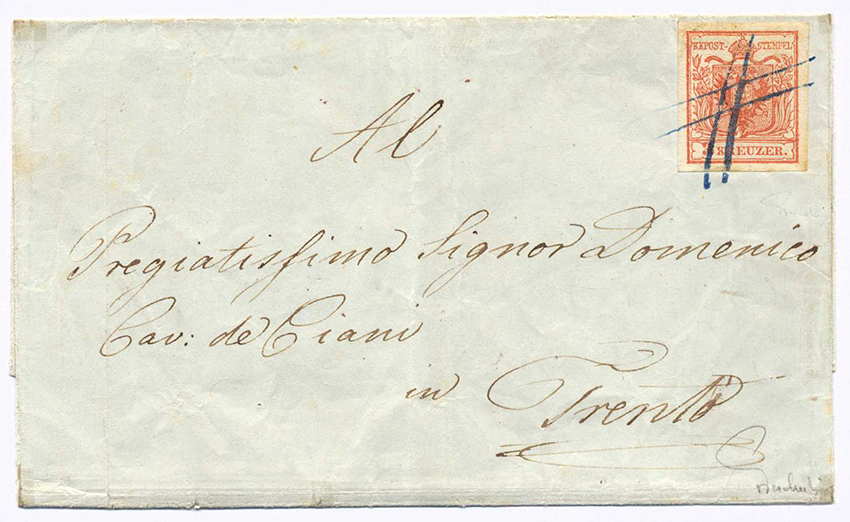 KKPOST-STEMPEL
3 KREUZER.
Al
Pregiatissimo Signor Domenico
Cav: de Ciani
in Trento